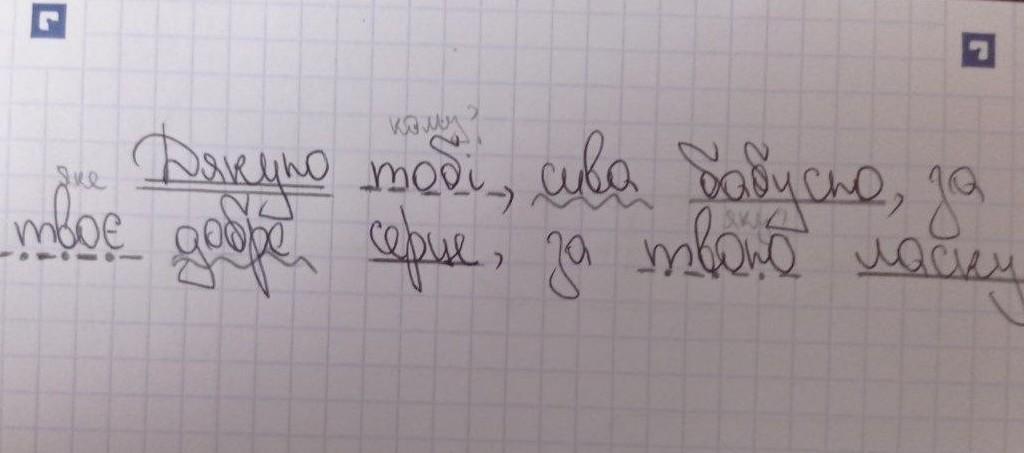 кому?
Дякую тобі, сива бабусю, за
яке яку
твоє добре серце, за твою ласку